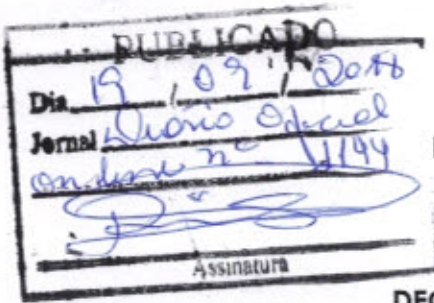 PUBLICADO
Dia 19 / 09 / 2018
Jornal Diário Oficial
on-line nº 1144
Assinatura
DEC